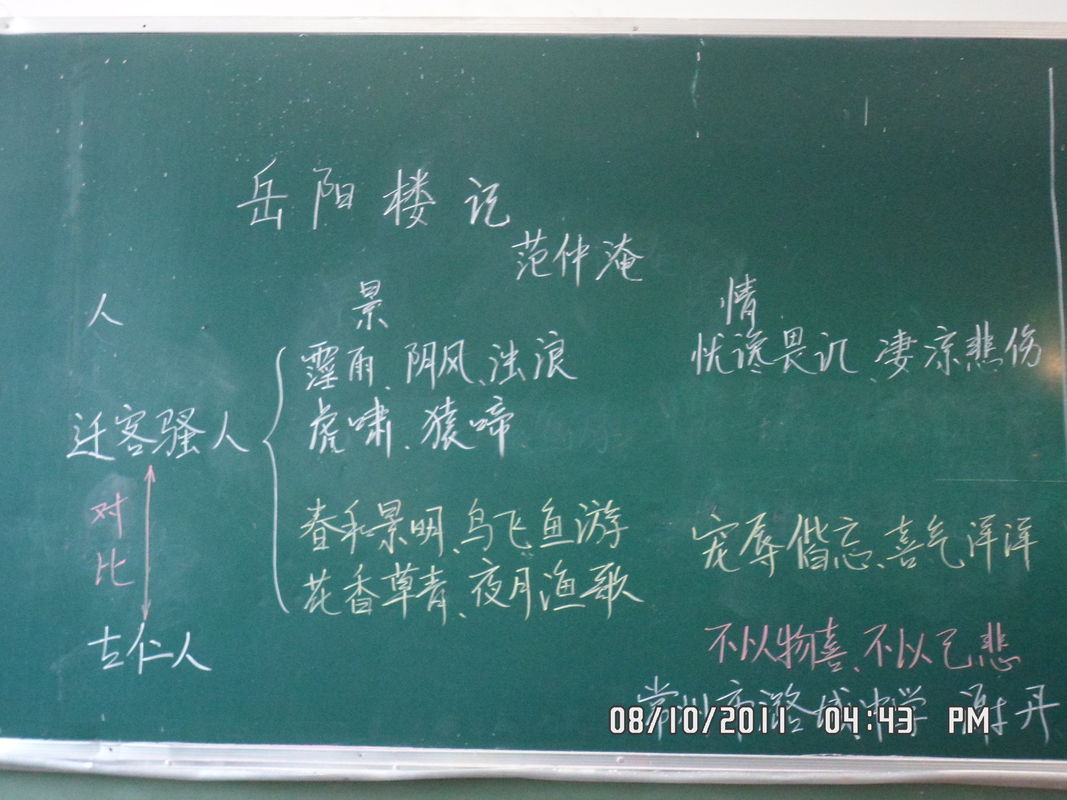 岳阳楼记
范仲淹
人 景 情
霪雨、阴风、浊浪 忧谗畏讥、凄凉悲伤
迁客骚人 虎啸、猿啼
对比
春和景明、鸟飞鱼游 宠辱偕忘、喜气洋洋
花香草青、夜月渔歌
古仁人 不以物喜、不以己悲
常州市潞城中学 谢丹
08/10/2011 04:43 PM